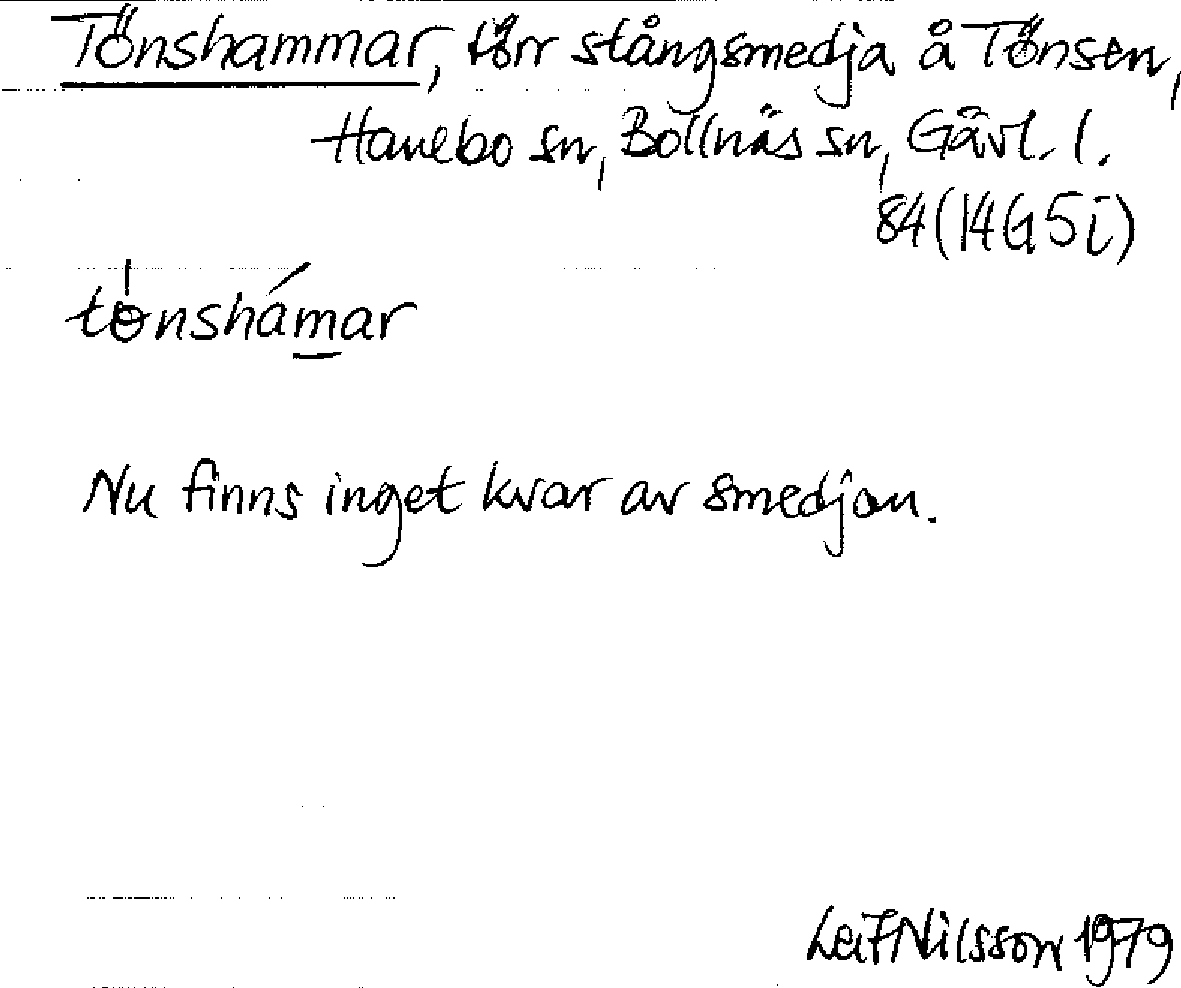 Tönshammar, förr stångsmedja å Tönsen,
Hanebo sn, Bollnäs sn, Gävl. l.
84(14G5i)
tɵ̍nshámar
Nu finns inget kvar av smedjan.
Leif Nilsson 1979